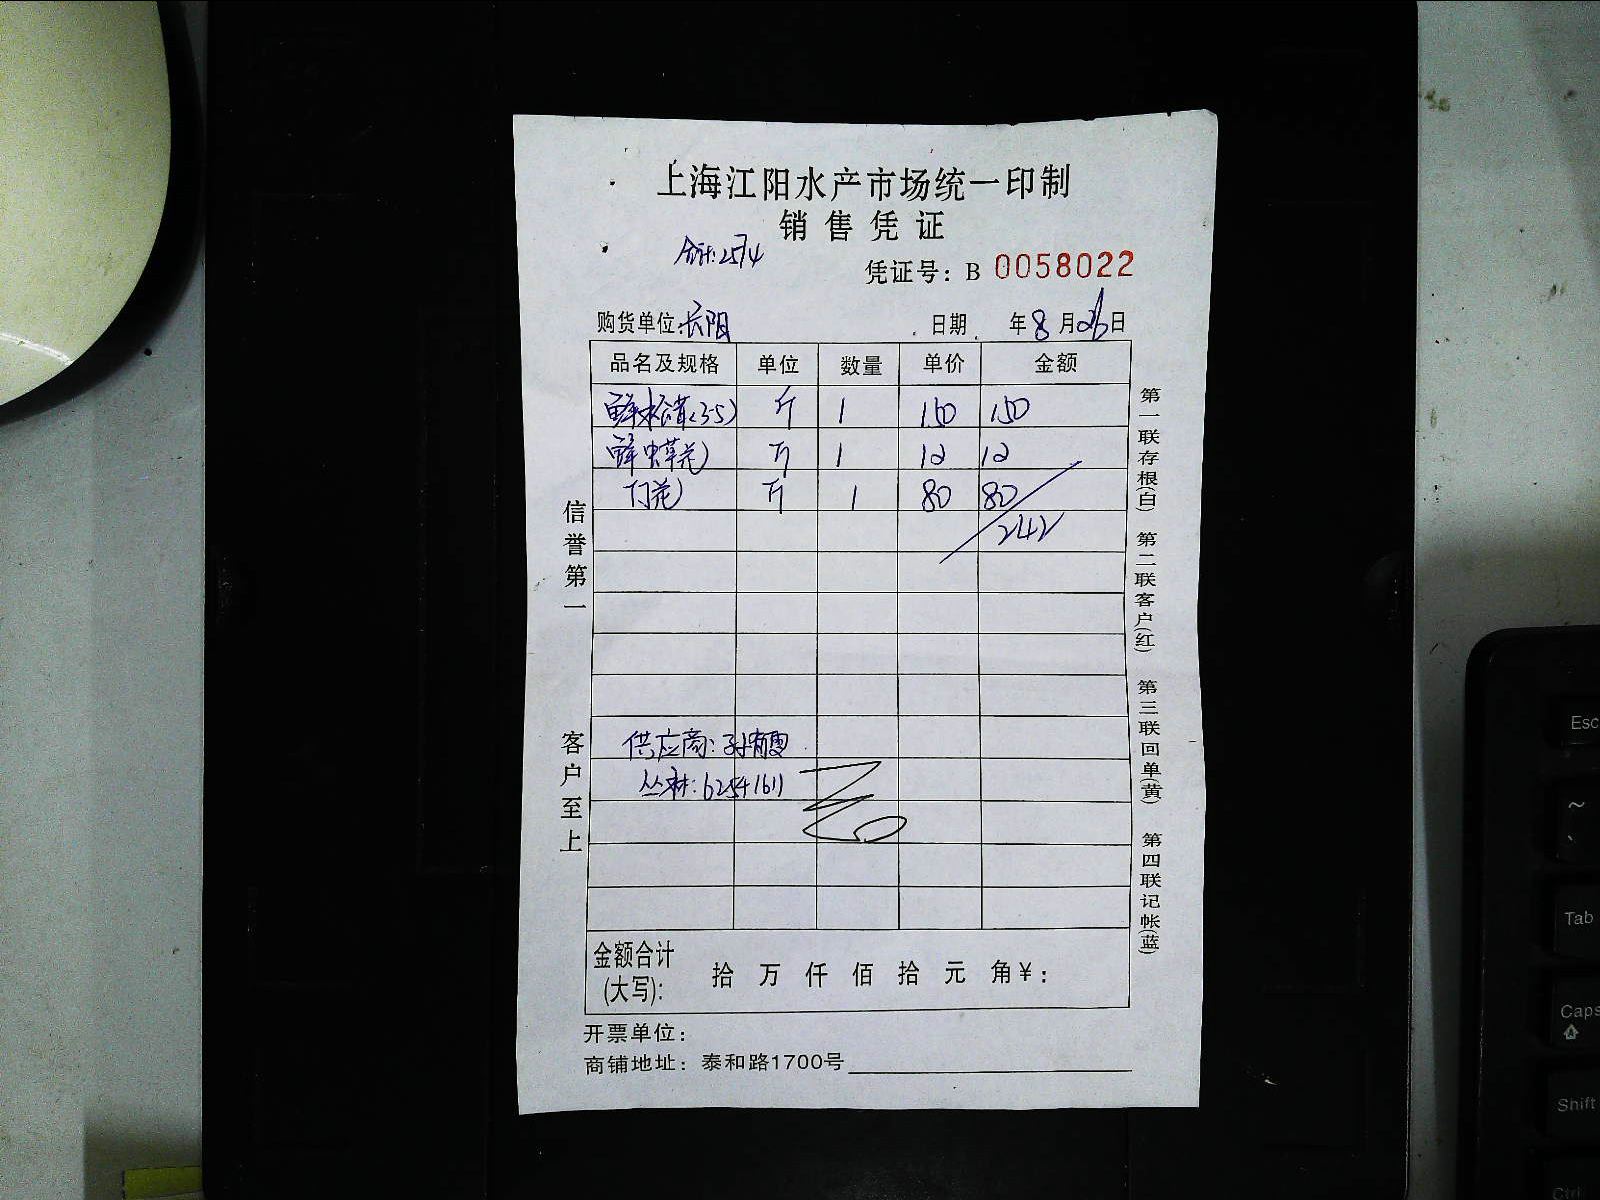 上海江阳水产市场统一印制
销售凭证
合计:2574
凭证号: B 0058022
购货单位:长阳 日期 年8月26日
品名及规格 单位 数量 单价 金额
鲜松茸(3-5) 斤 1 150 150
鲜虫草花 斤 1 12 12
斤 1 80 80
242
供应商:
丛林:62541611
金额合计
(大写): 拾 万 仟 佰 拾 元 角¥:
开票单位:
商铺地址: 泰和路1700号
信誉第一
客户至上
第一联存根(白) 第二联客户(红) 第三联回单(黄) 第四联记帐(蓝)
Esc
~
、
Tab
Caps
Shift
Ctrl